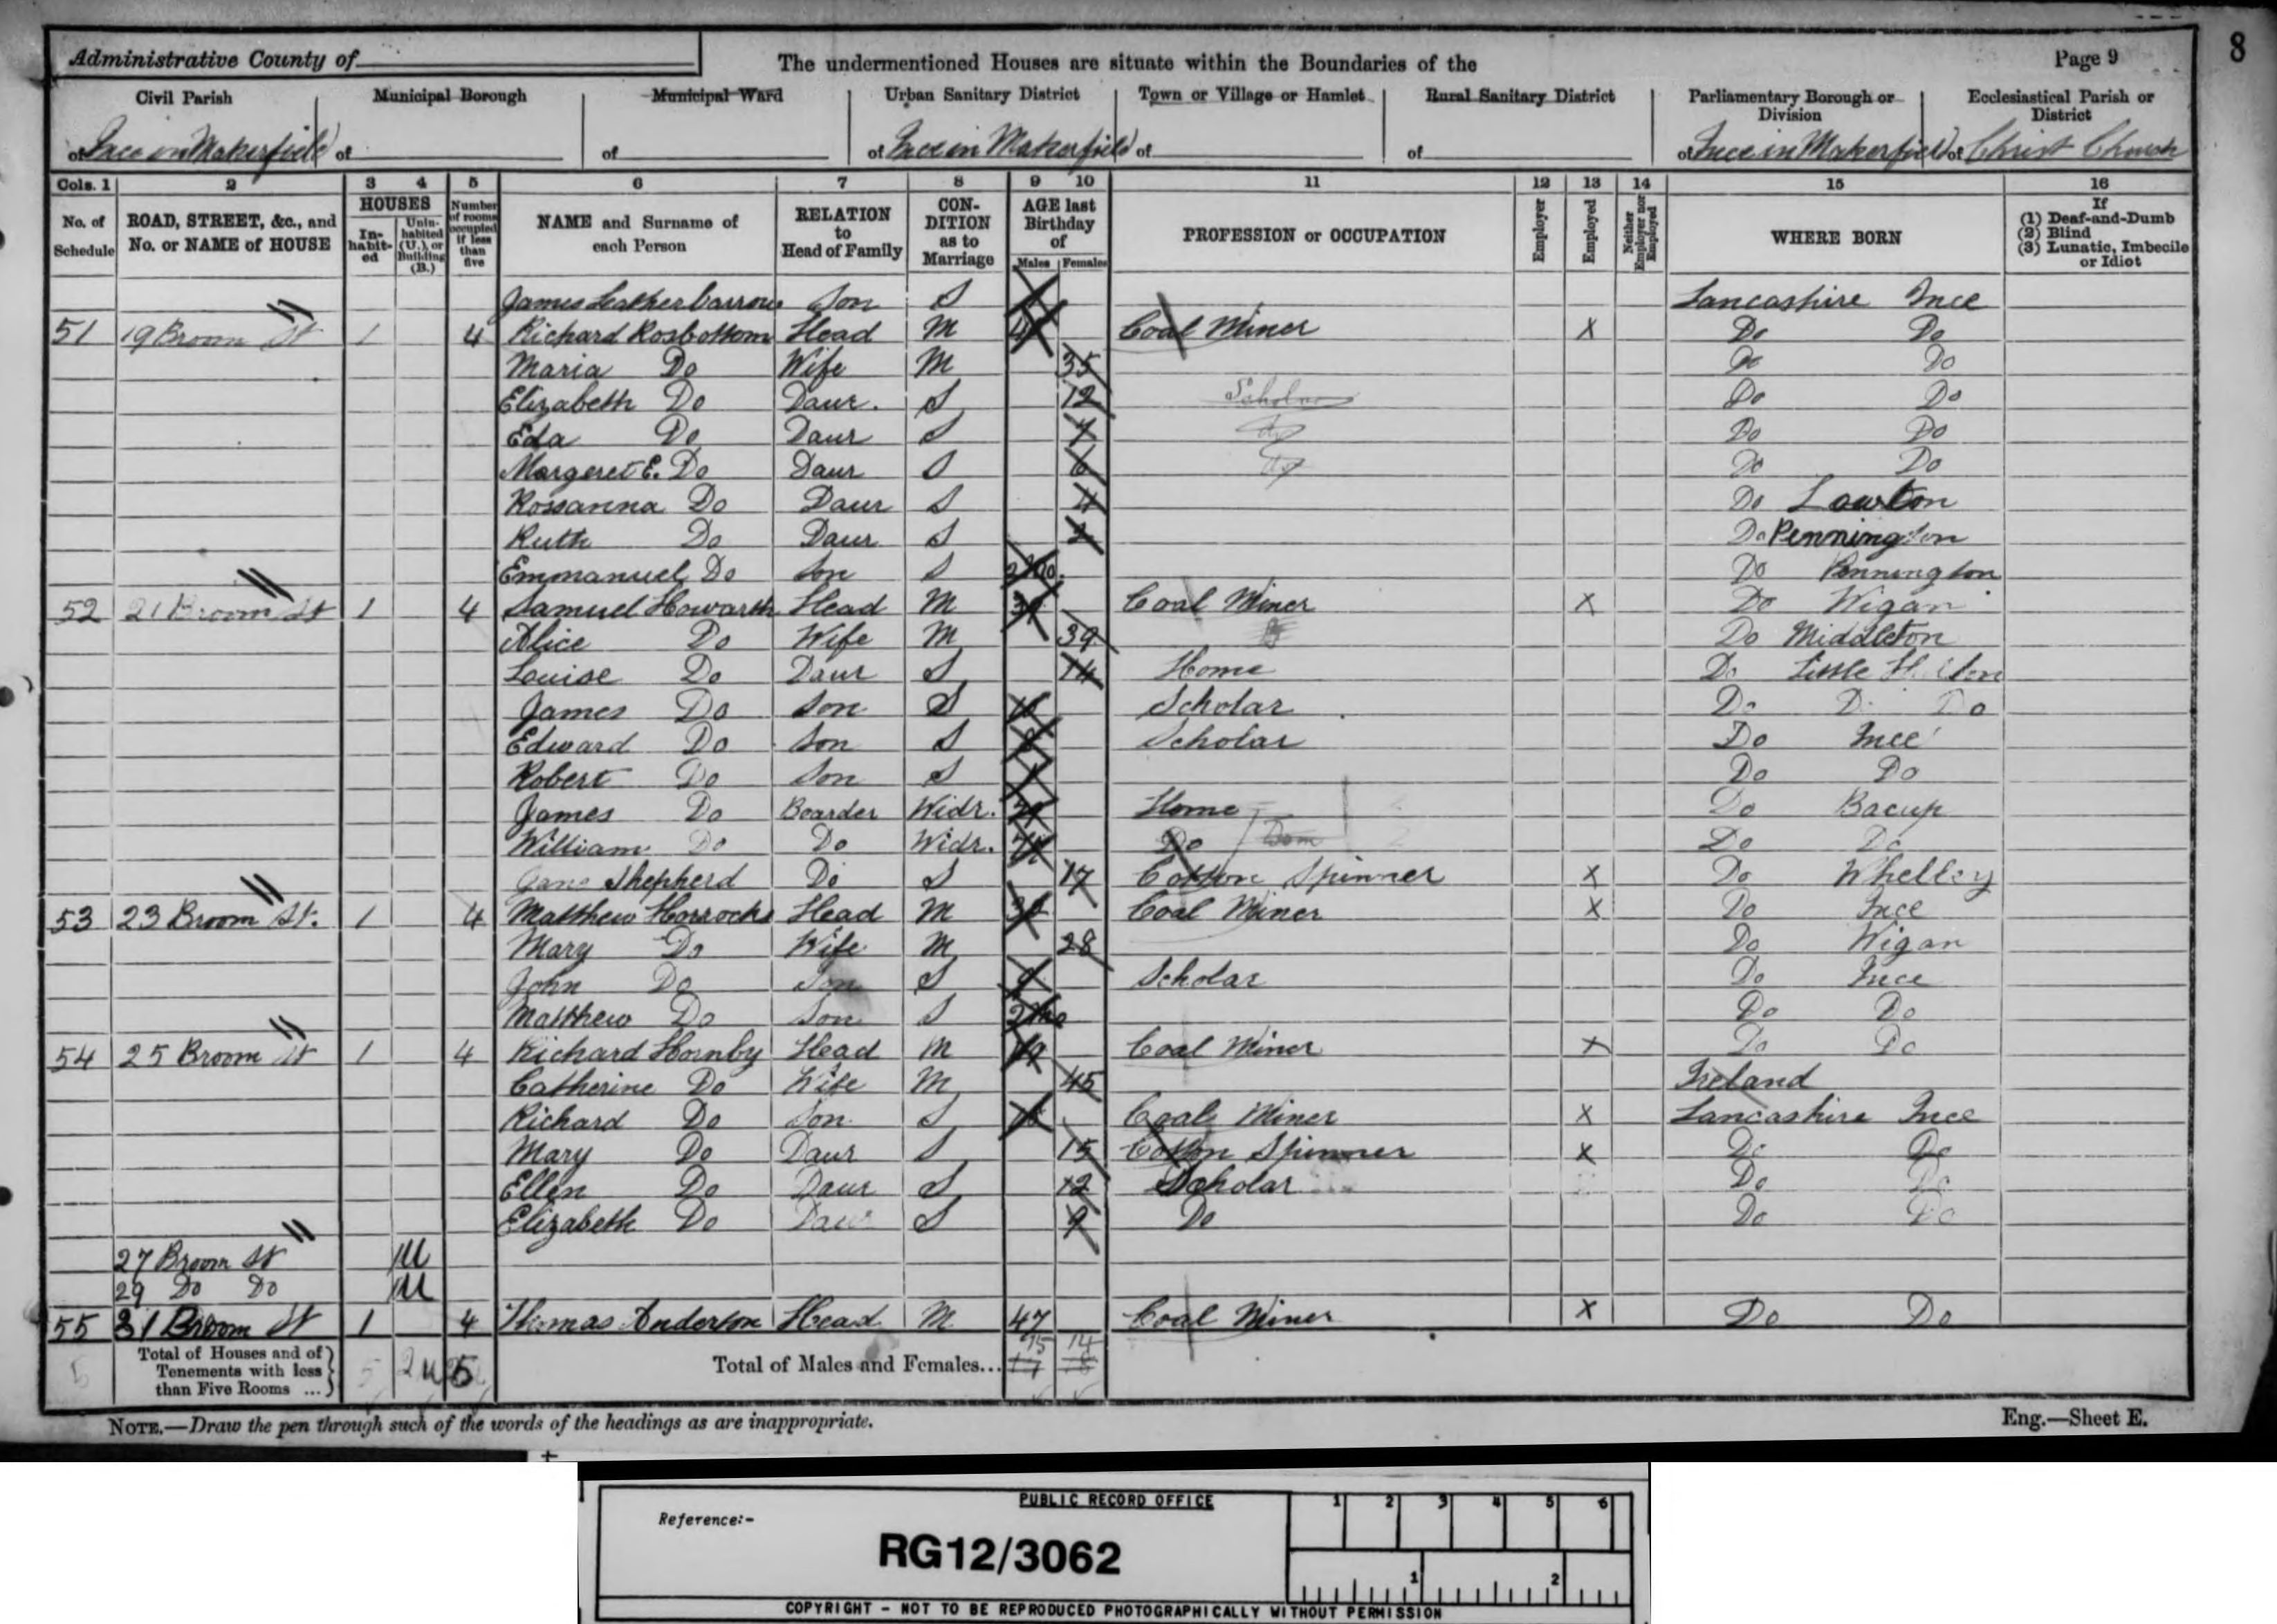 Administrative County of
The undermentioned Houses are situate within the Boundaries of the
Page 9
8
Civil Parish
of Ince in Makerfield
Municipal Borough
of
Municipal Ward
of
Urban Sanitary District
of Ince in Makerfield
Town or Village or Hamlet
of
Rural Sanitary District
of
Parliamentary Borough or Division
of Ince in Makerfield
Ecclesiastical Parish or District
of Christ Church
Cols. 1 2 3 4 5 6 7 8 9 10 11 12 13 14 15 16
No. of Schedule
ROAD, STREET, &c., and No. or NAME of HOUSE
HOUSES
Inhabited
Uninhabited (U.), or Building (B.)
Number of rooms occupied if less than five
NAME and Surname of each Person
RELATION to Head of Family
CONDITION as to Marriage
AGE last Birthday of
Males Females
PROFESSION or OCCUPATION
Employer
Employed
Neither Employer nor Employed
WHERE BORN
If
(1) Deaf-and-Dumb
(2) Blind
(3) Lunatic, Imbecile or Idiot
James Leatherbarrow Son S Lancashire Ince
51 19 Broom St 1 4 Richard Rosbottom Head M Coal Miner X Do Do
Maria Do Wife M 35 Do Do
Elizabeth Do Daur. S 12 Scholar Do Do
Eda Do Daur S 7 do Do Do
Margeret E. Do Daur S 6 do Do Do
Rossanna Do Daur S 4 Do Lowton
Ruth Do Daur S 2 Do Pennington
Emmanuel Do Son S Do Pennington
52 21 Broom St 1 4 Samuel Howarth Head M Coal Miner X Do Wigan
Alice Do Wife M 39 Do Middleton
Louise Do Daur S 14 Home Do Little
James Do Son S 10 Scholar Do Do Do
Edward Do Son S Scholar Do Ince
Robert Do Son S Do Do
James Do Boarder Widr. Home Do Bacup
William Do Do Widr. Do Do Do
Jane Shepherd Do S 17 Cotton Spinner X Do Whelley
53 23 Broom St. 1 4 Matthew Horrocks Head M Coal Miner X Do Ince
Mary Do Wife M 28 Do Wigan
John Do Son S Scholar Do Ince
Matthew Do Son S 2 mo Do Do
54 25 Broom St 1 4 Richard Hornby Head M Coal Miner X Do Do
Catherine Do Wife M 45 Ireland
Richard Do Son S Coal Miner X Lancashire Ince
Mary Do Daur S 15 Cotton Spinner X Do Do
Ellen Do Daur S 12 Scholar Do Do
Elizabeth Do Daur S 9 Do Do Do
27 Broom St 1U
29 Do Do 1U
55 31 Broom St 1 4 Thomas Anderton Head M 47 Coal Miner X Do Do
5 Total of Houses and of Tenements with less than Five Rooms ... 5 2U 5 Total of Males and Females... 15 14
17 18
NOTE.—Draw the pen through such of the words of the headings as are inappropriate.
Eng.—Sheet E.
PUBLIC RECORD OFFICE
Reference:-
RG12/3062
1 2 3 4 5 6
1 2
COPYRIGHT - NOT TO BE REPRODUCED PHOTOGRAPHICALLY WITHOUT PERMISSION